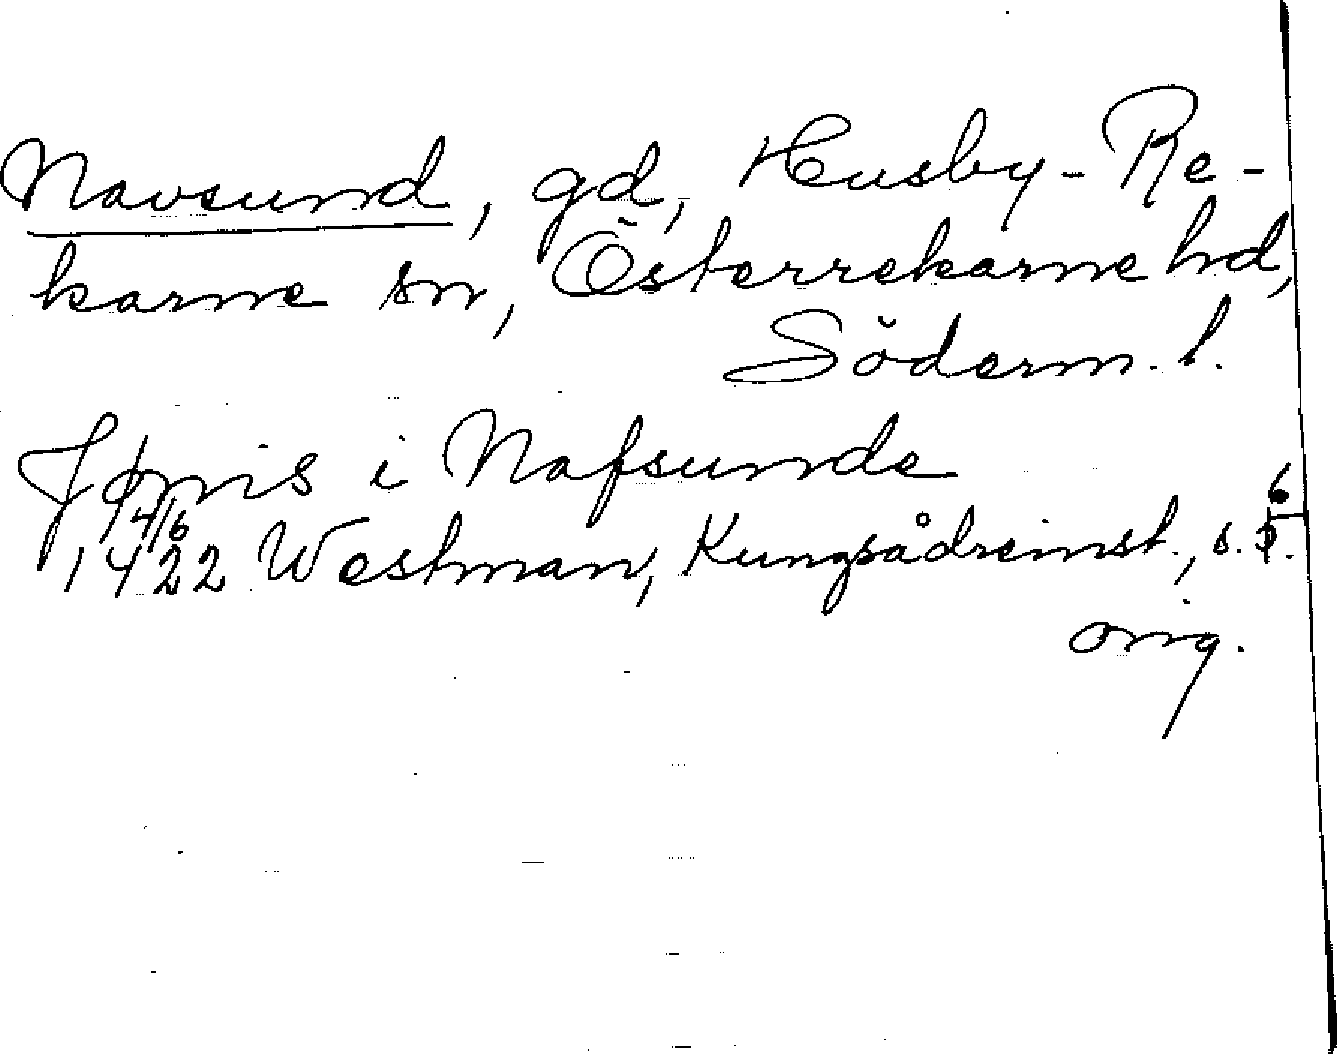 Navsund, gd, Husby-Re-
karne sn, Österrekarne hd,
Söderm. l.
Jönis i Nafsunde
14/6
1422 Westman, Kungsådreinst., s.
orig.